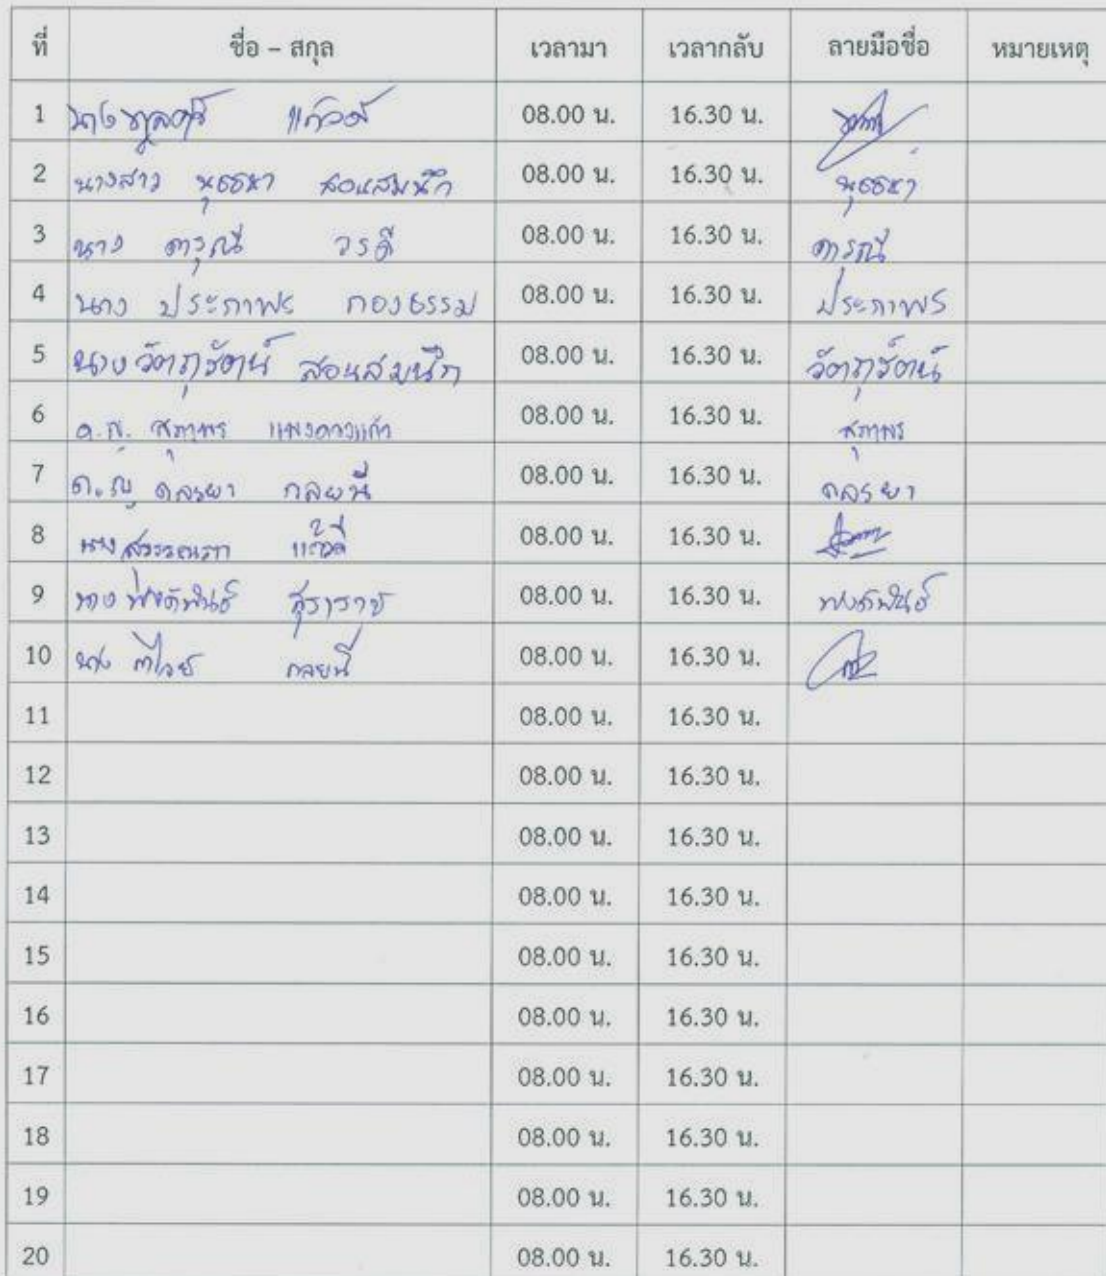 ที่ ชื่อ – สกุล เวลามา เวลากลับ ลายมือชื่อ หมายเหตุ
1 นาง แก้วดี 08.00 น. 16.30 น.
2 นางสาว นุธธหา สอนสมนึก 08.00 น. 16.30 น. นุธธหา
3 นาง ดารุณี วรดี 08.00 น. 16.30 น. ดารุณี
4 นาง ประภาพร กองธรรม 08.00 น. 16.30 น. ประภาพร
5 นาง สอนสมนึก 08.00 น. 16.30 น.
6 ด.ญ. สุภาพร แพงดวงแก้ว 08.00 น. 16.30 น. สุภาพร
7 ด.ญ ดลรยา กลยนี 08.00 น. 16.30 น. ดลรยา
8 นาง 08.00 น. 16.30 น.
9 นาง สุราราช 08.00 น. 16.30 น.
10 นาง กลยนี 08.00 น. 16.30 น.
11 08.00 น. 16.30 น.
12 08.00 น. 16.30 น.
13 08.00 น. 16.30 น.
14 08.00 น. 16.30 น.
15 08.00 น. 16.30 น.
16 08.00 น. 16.30 น.
17 08.00 น. 16.30 น.
18 08.00 น. 16.30 น.
19 08.00 น. 16.30 น.
20 08.00 น. 16.30 น.